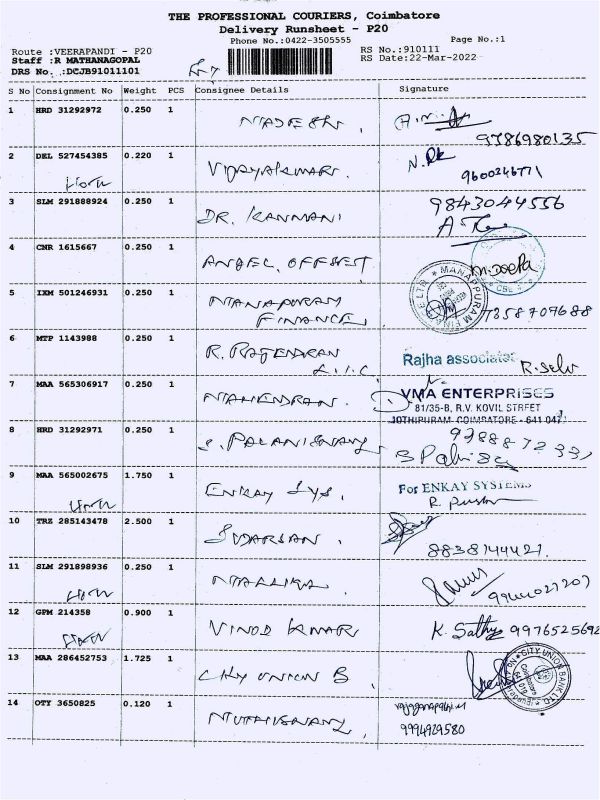 THE PROFESSIONAL COURIERS, Coimbatore
Delivery Runsheet - P20
Phone No.:0422-3505555 Page No.:1
Route :VEERAPANDI - P20 RS No.:910111
Staff :R MATHANAGOPAL RS Date:22-Mar-2022
DRS No. :DCJB91011101
S No Consignment No Weight PCS Consignee Details Signature
1 HRD 31292972 0.250 1
9786980135
2 DEL 527454385 0.220 1 VIJAYAKUMAR. 9600246771
3 SLM 291888924 0.250 1 DR. KANMANI 9843044556
4 CNR 1615667 0.250 1 ANGEL OFFSET M.Deepa
5 IXM 501246931 0.250 1 MANAPURAM
FINANCE 7358709688
MANAPPURAM FINANCE LTD
6 MTP 1143988 0.250 1 R. RAJENDRAN Rajha associates
L.I.C. R. Selv
7 MAA 565306917 0.250 1 MAHENDRAN. VMA ENTERPRISES
81/35-B, R.V. KOVIL STREET
JOTHIPURAM, COIMBATORE - 641 047
8 HRD 31292971 0.250 1 S. PALANISWAMY
9 MAA 565002675 1.750 1 ENKAY SYS. For ENKAY SYSTEMS
10 TRZ 285143478 2.500 1 SUDARSAN.
8838144421.
11 SLM 291898936 0.250 1 MALLIKA
12 GPM 214358 0.900 1 VINOD KUMAR K. Sathy 9976525692
13 MAA 286452753 1.725 1 CITY UNION B. CITY UNION BANK LTD
14 OTY 3650825 0.120 1 MUTHUSWAMY
9994929580